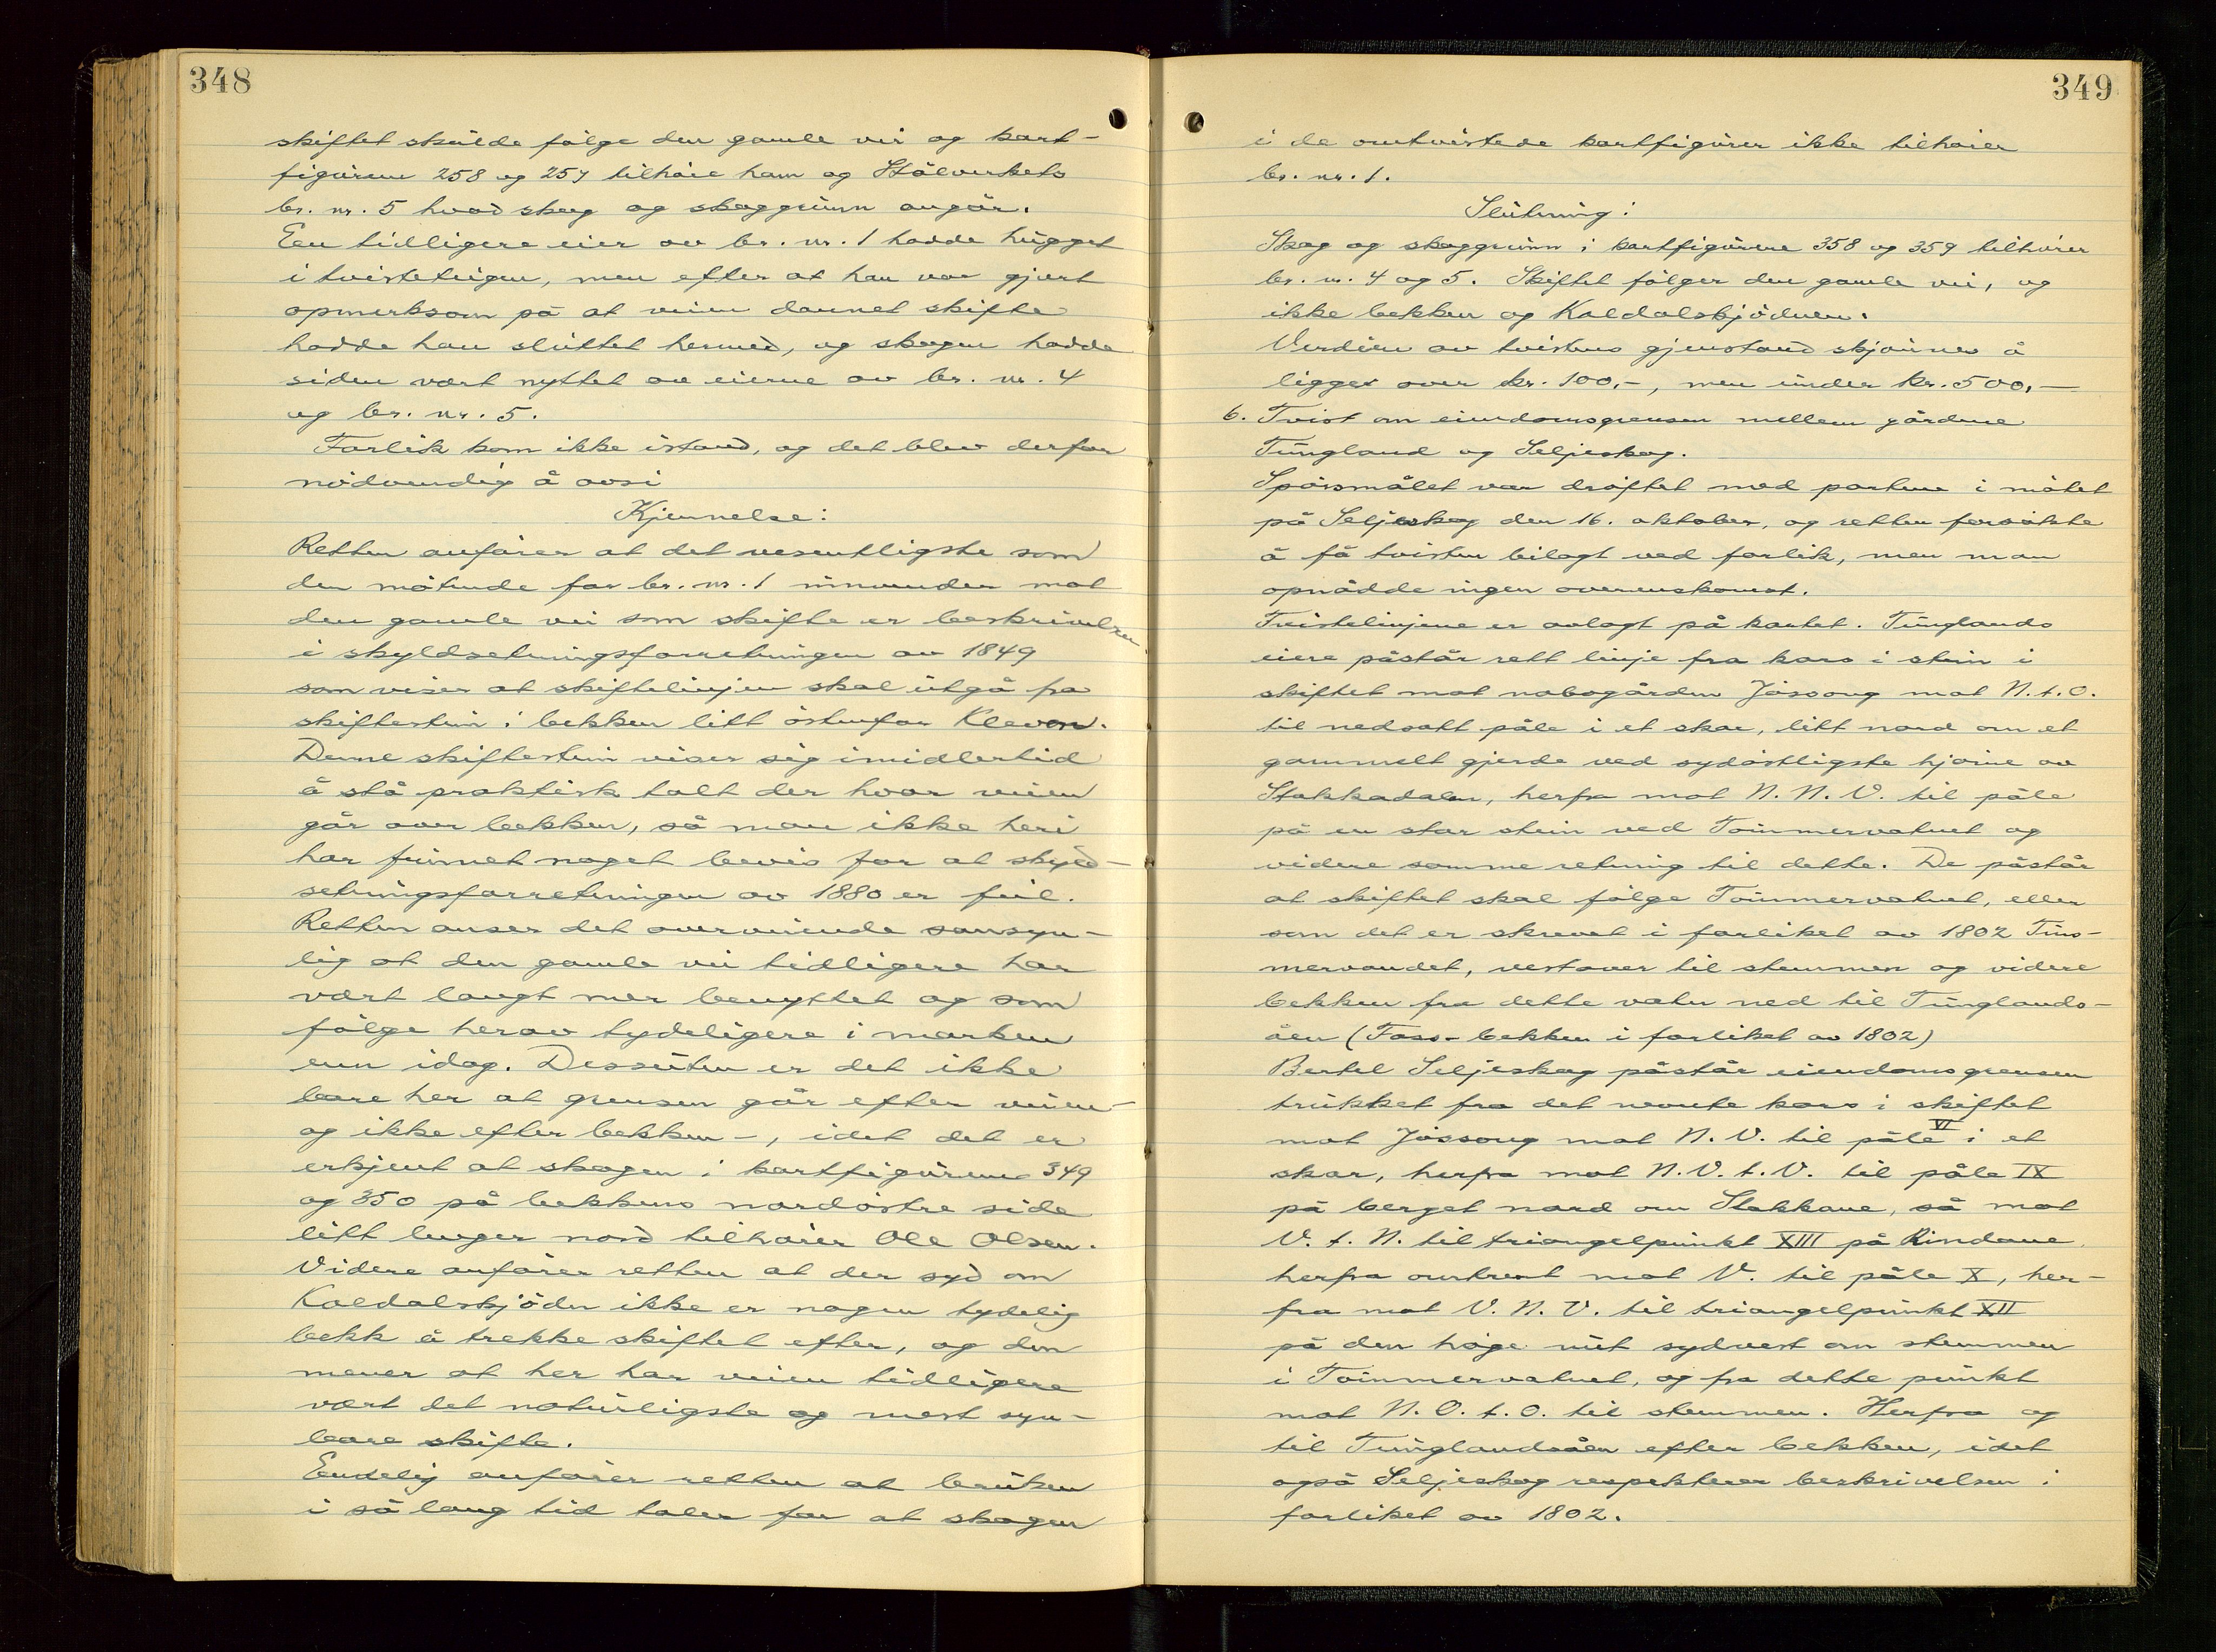 348
skiftet skulde følge den gamle vei og kart-
figurene 258 og 259 tilhøre ham og Stålverkets
br. nr. 5 hvad skog og skoggrunn angår.
Een tidligere eier av br. nr. 1 hadde hugget
i tvisteteigen, men efter at han var gjort
opmerksom på at veien dannet skifte
hadde han sluttet hermed, og skogen hadde
siden vært nyttet av eierne av br. nr. 4
og br. nr. 5.
Forlik kom ikke istand, og det blev derfor
nödvendig å avsi
Kjennelse:
Retten anfører at det vesentligste som
den mötende for br. nr. 1 innvender mot
den gamle vei som skifte er beskrivelsen
i skyldsetningsforretningen av 1849
som viser at skiftelinjen skal utgå fra
skiftestein i bekken litt östenfor Kleven.
Denne skiftestein viser sig imidlertid
å stå praktisk talt der hvor veien
går over bekken, så man ikke heri
har funnet noget bevis for at skyld-
setningsforretningen av 1880 er feil.
Retten anser det overveiende sansyn-
lig at den gamle vei tidligere har
vært langt mer benyttet og som
fölge herav tydeligere i marken
enn idag. Dessuten er det ikke
bare her at grensen går efter veien-
og ikke efter bekken -, idet det er
erkjent at skogen i kartfigurene 349
og 350 på bekkens nordöstre side
litt lenger nord tilhører Ole Olsen.
Videre anfører retten at der syd om
Kaldalstjödn ikke er nogen tydelig
bekk å trekke skiftet efter, og den
mener at her har veien tidligere
vært det naturligste og mest syn-
bare skifte.
Endelig anfører retten at bruken
i så lang tid taler for at skogen
349
i de omtvistede kartfigurer ikke tilhører
br. nr. 1.
Slutning:
Skog og skoggrunn i kartfigurene 358 og 359 tilhører
br. nr. 4 og 5. Skiftet fölger den gamle vei, og
ikke bekken og Kaldalstjödnen.
Verdien av tvistens gjenstand skjønnes å
ligger over kr. 100,-, men under kr. 500,-
6. Tvist om eiendomsgrensen mellem gårdene
Tungland og Seljeskog.
Spörsmålet var dröftet med partene i mötet
på Seljeskog den 16. oktober, og retten forsökte
å få tvisten bilagt ved forlik, men man
opnådde ingen overenskomst.
Tvistelinjene er avlagt på kartet. Tunglands
eiere påstår rett linje fra kors i stein i
skiftet mot nabogården Jössang mot N.t.O.
til nedsatt påle i et skar, litt nord om et
gammelt gjerde ved sydöstligste hjørne av
Stakkadalen, herfra mot N.N.V. til påle
på en stor stein ved Tømmervatnet og
videre samme retning til dette. De påstår
at skiftet skal følge Tømmervatnet, eller
som det er skrevet i forliket av 1802 Töm-
mervandet, vestover til stemmen og videre
bekken fra dette vatn ned til Tunglands-
åen (Foss-bekken i forliket av 1802)
Bertel Seljeskog påstår eiendomsgrensen
trukket fra det nevnte kors i skiftet
mot Jössang mot N.V. til påle VI i et
skar, herfra mot N.V.t.V. til påle IX
på berget nord om Stakkane, så mot
V.t.N. til triangelpunkt XIII på Rindane,
herfra omtrent mot V. til påle X, her-
fra mot V.N.V. til triangelpunkt XII
på den høge nut sydvest om stemmen
i Tømmervatnet, og fra dette punkt
mot N.O.t.O. til stemmen. Herfra og
til Tunglandsåen efter bekken, idet
også Seljeskog respekterer beskrivelsen i
forliket av 1802.